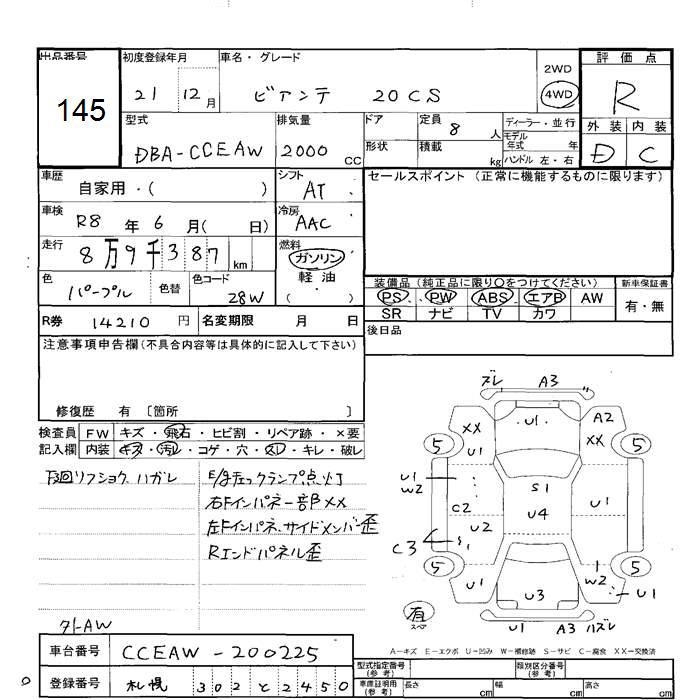 出品番号 初度登録年月 車名・グレード 2WD 評価点
145 21 12月 ビアンテ 20CS 4WD R
型式 排気量 ドア 定員 8 人 ディーラー・並行 外装 内装
モデル年式 年
DBA-CCEAW 2000 CC 形状 積載 kg ハンドル 左・右 D C
車歴 自家用・( ) シフト AT セールスポイント (正常に機能するものに限ります)
車検 R8 年 6 月( 日) 冷房 AAC
走行 8万9千387 km 燃料 ガソリン
軽油
( )
色 パープル 色替 色コード 28W
装備品 (純正品に限り○をつけてください) 新車保証書
PS PW ABS エアB AW 有・無
SR ナビ TV カワ
R券 14210 円 名変期限 月 日 後日品
注意事項申告欄(不具合内容等は具体的に記入して下さい)
修復歴 有 〔箇所 〕
検査員 FW キズ・飛石・ヒビ割・リペア跡・×要
記入欄 内装 キズ・汚レ・コゲ・穴・スレ・キレ・破レ
下回リフショク、ハガレ
右Fインパネ一部××
左Fインパネ、サイドメンバー歪
Rエンドパネル歪
社外AW
ズレ A3
U1 A2
XX XX
U1
5 5
U1 S1 U1
W2
C2 U4
U2
C3 S1
5 5
U1 1
W2
U3 U1
有
スペア
U1 A3 ハズレ
A—キズ E—エクボ U—凹み W—補修跡 S—サビ C—腐食 XX—交換済
車台番号 CCEAW-200225
登録番号 札幌 302と2450
型式指定番号(参考) 類別区分番号(参考)
車庫証明用(参考) 長さ cm 幅 cm 高さ cm